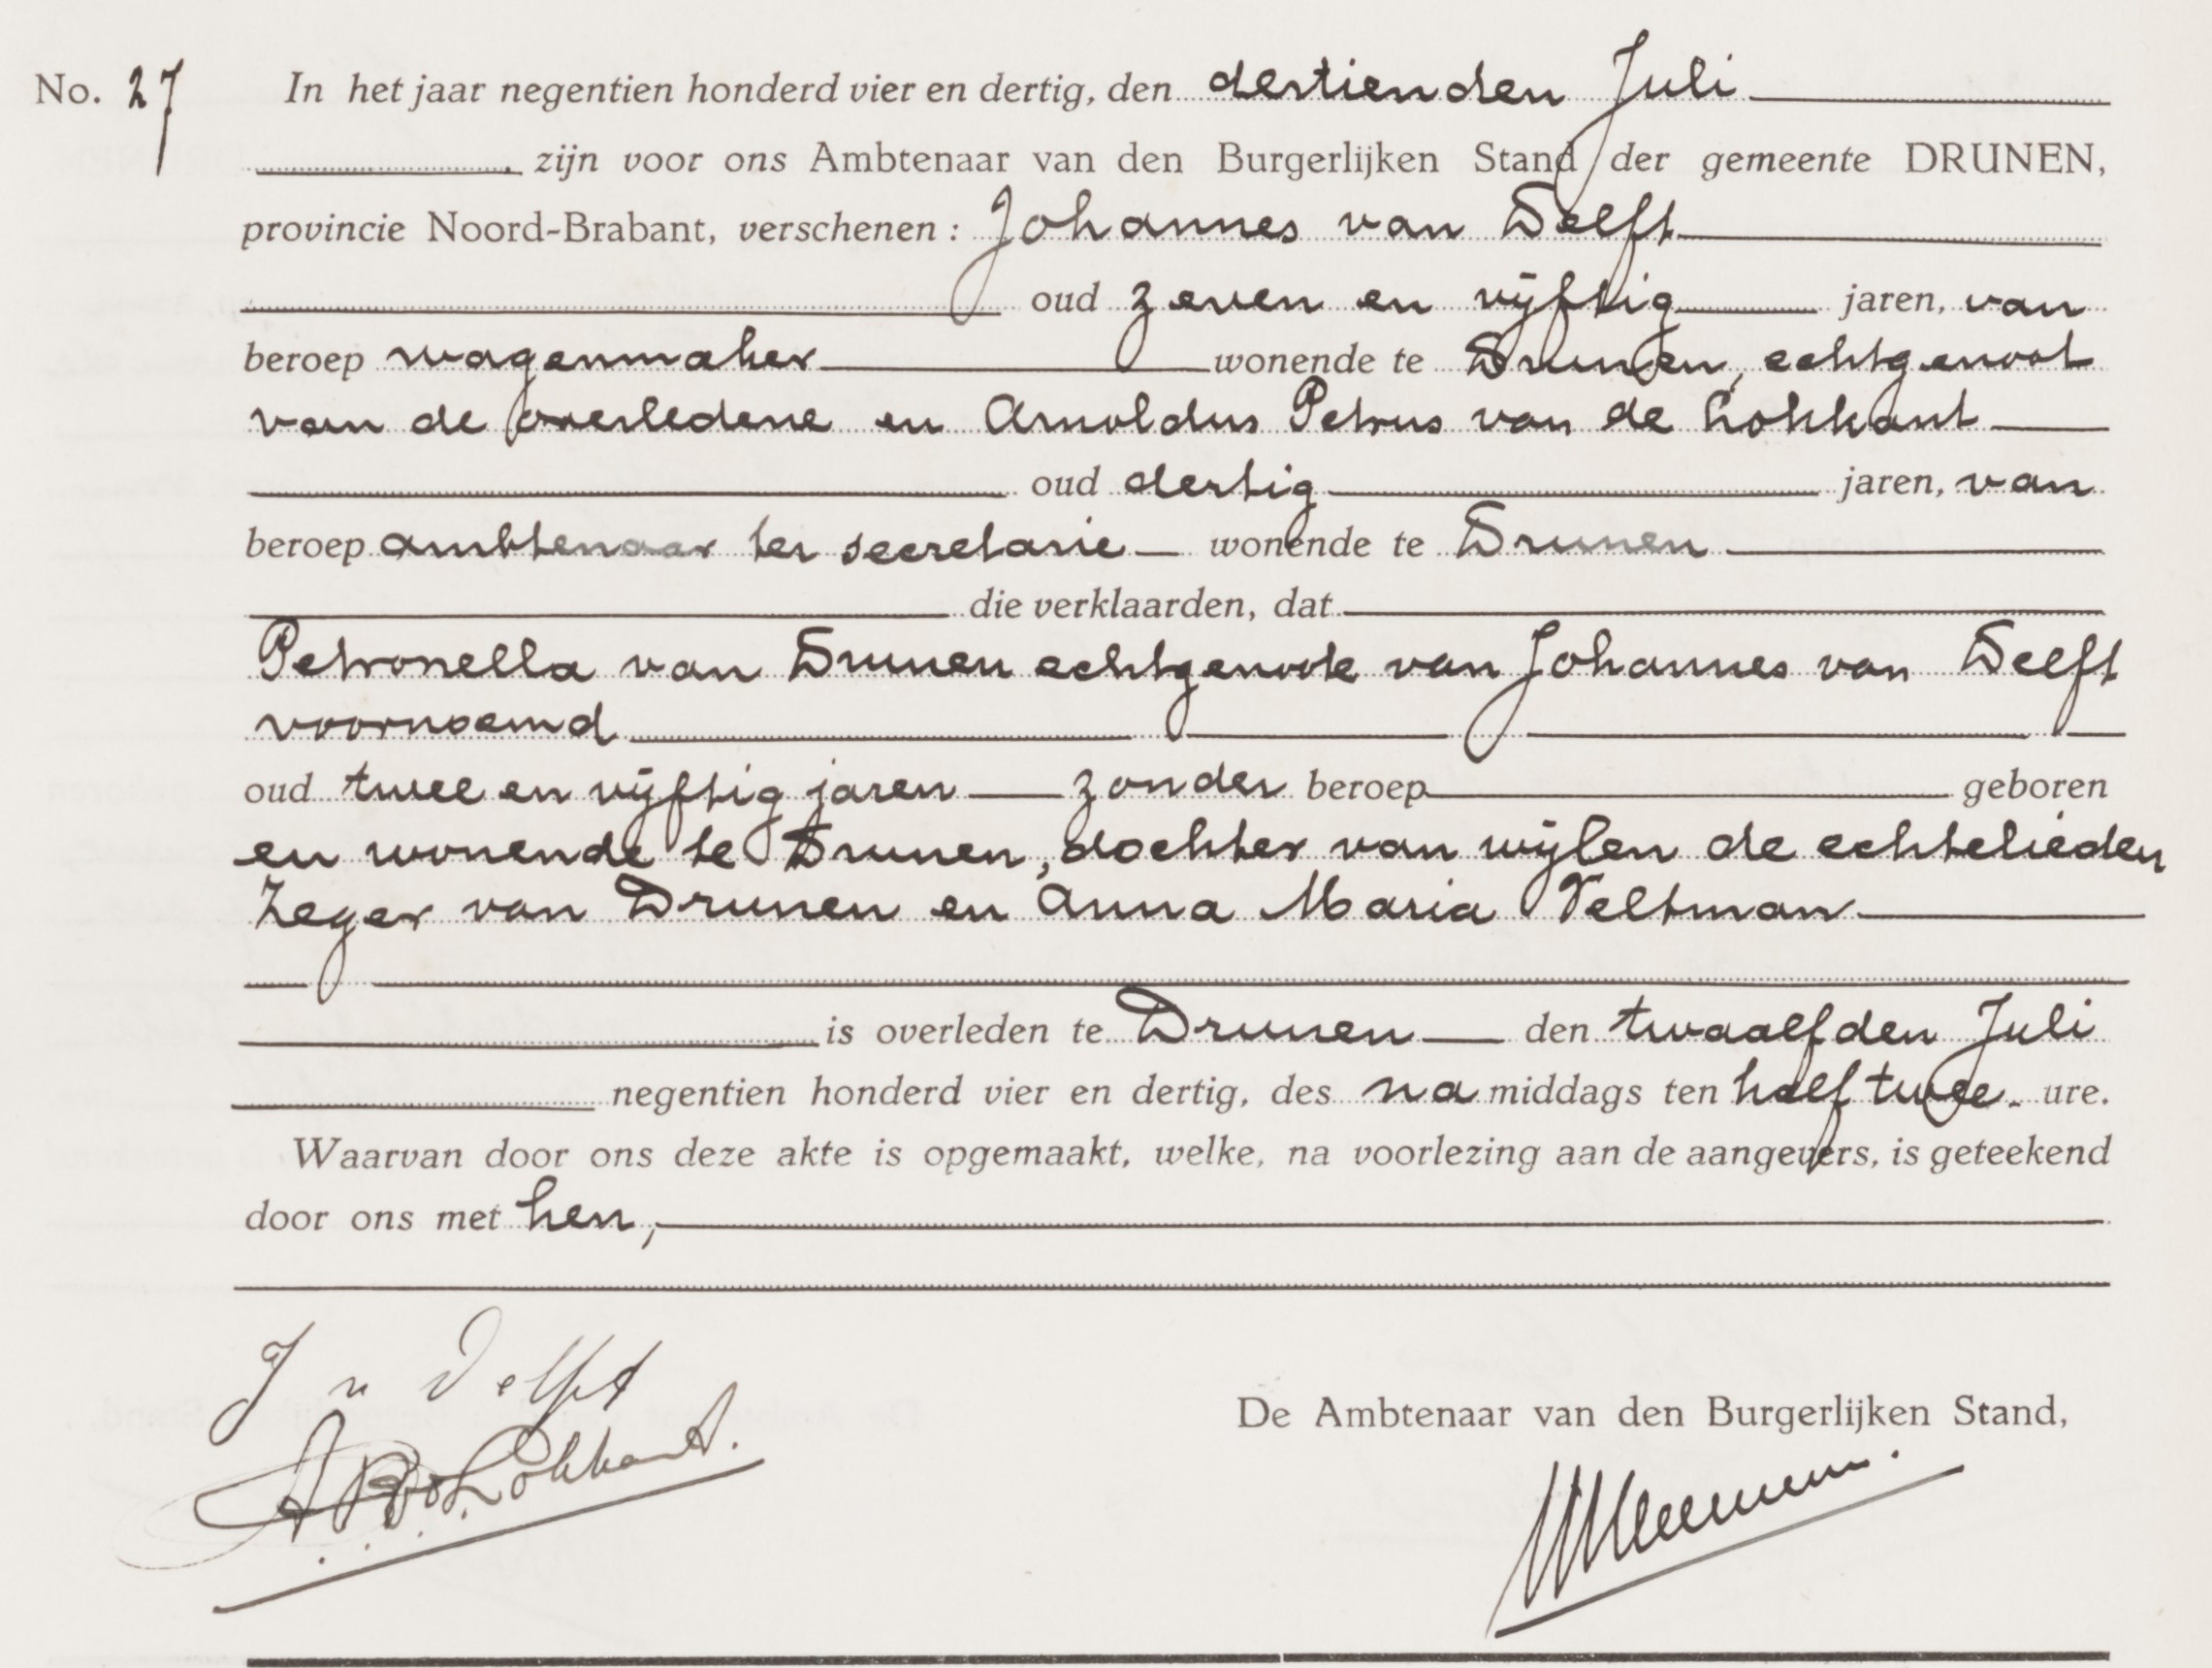 No. 27 In het jaar negentien honderd vier en dertig, den dertienden Juli
zijn voor ons Ambtenaar van den Burgerlijken Stand der gemeente DRUNEN,
provincie Noord-Brabant, verschenen: Johannes van Delft
oud zeven en vijftig jaren, van
beroep wagenmaker wonende te Drunen, echtgenoot
van de overledene en Arnoldus Petrus van de Lokkant
oud dertig jaren, van
beroep ambtenaar ter secretarie wonende te Drunen
die verklaarden, dat
Petronella van Drunen echtgenoote van Johannes van Delft
voornoemd
oud twee en vijftig jaren zonder beroep geboren
en wonende te Drunen, dochter van wijlen de echtelieden
Zeger van Drunen en Anna Maria Veltman
is overleden te Drunen den twaalfden Juli
negentien honderd vier en dertig, des namiddags ten half twee ure.
Waarvan door ons deze akte is opgemaakt, welke, na voorlezing aan de aangevers, is geteekend
door ons met hen,
J v Delft
De Ambtenaar van den Burgerlijken Stand,
A P v d Lokkant.